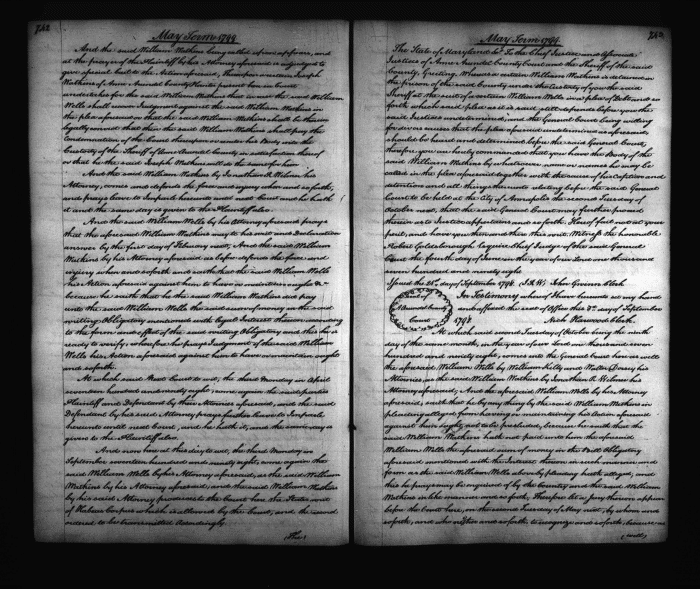 May Term 1799
And the said William Watkins being called if and appears, and
at the prayer of the Plaintiff by his Attorney aforesaid is adjudged to
give special bail to the Action aforesaid, Thereupon a certain Joseph
Watkins of Anne Arundel County Planter present here in Court
undertakes for the said William Watkins that in case the said William
Wells shall recover Judgment against the said William Watkins in
the plea aforesaid or that the said William Watkins shall be therein
legally convicted that then the said William Watkins shall pay the
Condemnation of the Court thereupon or render his Body into the
Custody of the Sheriff of Anne Arundel County in satisfaction thereof
or that he the said Joseph Watkins will do the same for him
And the said William Watkins by Jonathan R. Wilmer his
Attorney, comes and defends the force and injury when and so forth,
and prays leave to Imparle hereunto until next Court and he hath
it and the same day is given to the Plaintiff also.
And the said William Wells by his Attorney aforesaid prays
that the aforesaid William Watkins may to his writ and Declaration
answer by the first day of February next, And the said William
Watkins by his Attorney aforesaid as before defends the force and
injury when and so forth and saith that the said William Wells
his Action aforesaid against him to have or maintain ought not
because he saith that he the said William Watkins did pay
unto the said William Wells the said sum of money in the said
writing Obligatory mentioned with legal Interest thereon according
to the form and effect of the said writing Obligatory and this he is
ready to verify, wherefore he prays Judgment if the said William
Wells his Action aforesaid against him to have or maintain ought
and so forth.
At which said next Court to wit, the third Monday in April
seventeen hundred and ninety eight, came again the said parties
Plaintiff and Defendant by their Attornies aforesaid, and the said
Defendant by his said Attorney prays further leave to Imparle
hereunto until next Court, and he hath it, and the same day is
given to the Plaintiff also.
And now here at this day to wit, the third Monday in
September seventeen hundred and ninety eight, came again the
said William Wells by his Attorney aforesaid, as the said William
Watkins by his Attorney aforesaid, and the said William Watkins
by his said Attorney produced to the Court here the States writ
of Habeas Corpus which is allowed by the Court, and the record
ordered to be transmitted Accordingly
(The)
May Term 1799
The State of Maryland Sc. To the Chief Justice and Associate
Justices of Anne Arundel County Court and the Sheriff of the said
County, Greeting, Whereas a certain William Watkins is detained in
the prison of the said County under the Custody of you the said
Sheriff at the suit of a certain William Wells in a plea of Debt and so
forth which said plea as it is said yet depends before you the
said Justices undetermined, and the General Court being willing
for divers causes that the plea aforesaid undetermined as aforesaid,
should be heard and determined before the said General Court,
therefore you are hereby commanded that you have the Body of the
said William Watkins by whatsoever name or names he may be
called in the plea aforesaid together with the cause of his Caption and
detention and all things thereunto relating before the said General
Court to be held at the City of Annapolis the second Tuesday of
October next, that the said General Court may further proceed
therein as to Justice appertains and so forth. Hereof fail not at your
peril, and have you then and there this writ. Witness the honorable
Robert Goldsborough Esquire Chief Judge of the said General
Court the fourth day of June in the year of our Lord one thousand
seven hundred and ninety eight
Issued the 25th day of September 1798. (J.R.W) John Gwinn Clerk
Seal of
County
Court
In Testimony whereof I have hereunto set my hand
and affixed the seal of Office this day of September
1798 Nich Harwood Clerk.
At which said second Tuesday of October being the ninth
day of the same month, in the year of our Lord one thousand seven
hundred and ninety eight, comes into the General Court here as well
the aforesaid William Wells by William Kilty and Walter Dorsey his
Attornies, as the said William Watkins by Jonathan R. Wilmer his
Attorney aforesaid, And the said William Wells by his Attorney
aforesaid, saith that he by any thing by the said William Watkins in
pleading alleged from having or maintaining his Action aforesaid
against him ought not to be precluded, because he saith that the
said William Watkins hath not paid unto him the aforesaid
William Wells the aforesaid sum of money in the Bill Obligatory
aforesaid mentioned with the Interest thereon in such manner and
form as the said William Wells above by pleading hath alleged, and
this he prays may be enquired of by the Country and the said William
Watkins in like manner and so forth, Therefore let a jury thereon appear
before the Court here, on the second Tuesday of May next, by whom and
so forth, and who neither and so forth to recognize and so forth, because as
(well)